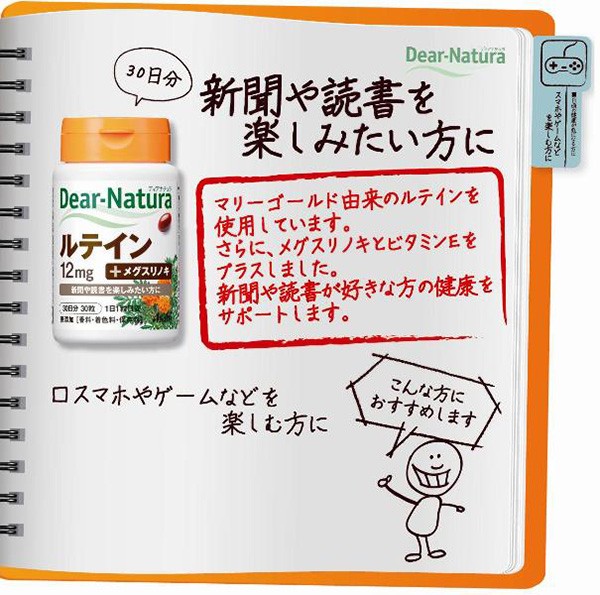 30日分
Dear-Natura
ディアナチュラ
新聞や読書を
楽しみたい方に
スマホやゲームなど
を楽しむ方に
Dear-Natura
ディアナチュラ
ルテイン
12mg
+メグスリノキ
新聞や読書を楽しみたい方に
30日分 30粒
マリーゴールド由来のルテインを
使用しています。
さらに、メグスリノキとビタミンEを
プラスしました。
新聞や読書が好きな方の健康を
サポートします。
□スマホやゲームなどを
楽しむ方に
こんな方に
おすすめします